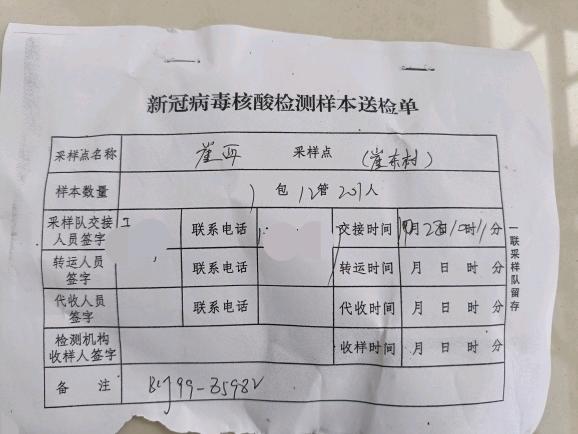 新冠病毒核酸检测样本送检单
采样点名称 崔西 采样点 (崔东村)
样本数量 1包12管201人
采样队交接人员签字 联系电话 交接时间 10月28日10时11分
转运人员签字 联系电话 转运时间 月 日 时 分
代收人员签字 联系电话 代收时间 月 日 时 分
检测机构收样人签字 收样时间 月 日 时 分
备 注
一联采样队留存